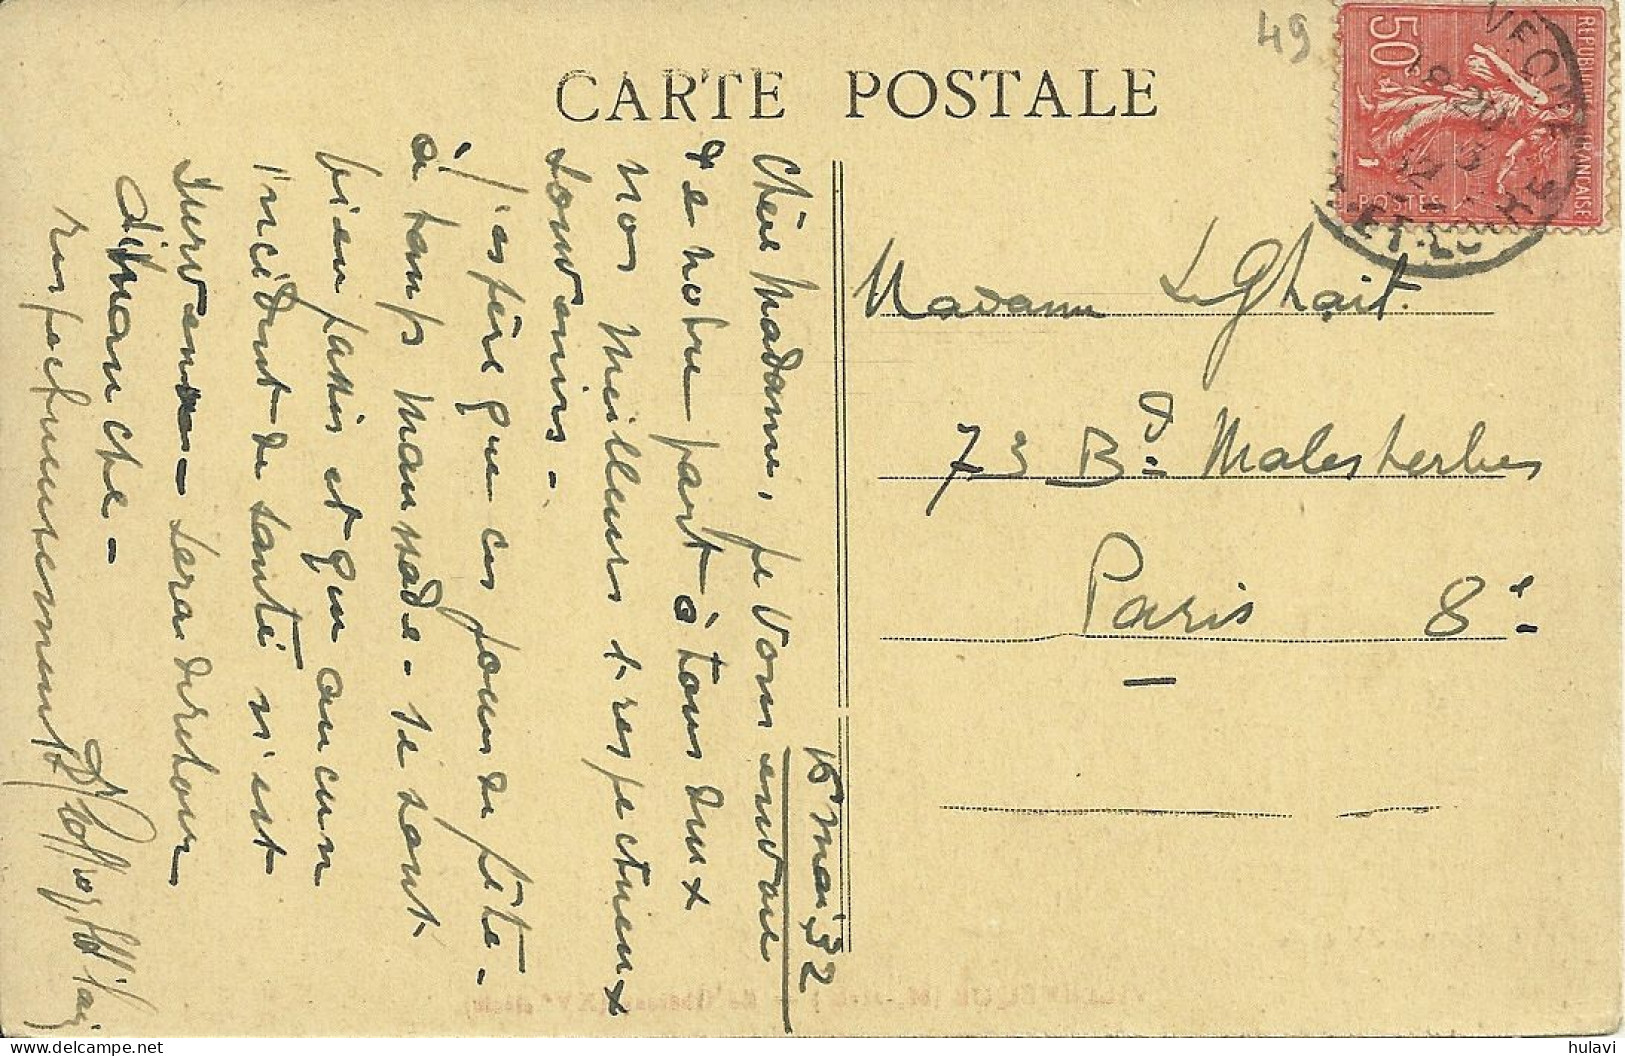 49
CARTE POSTALE
REPUBLIQUE FRANÇAISE
50c
POSTES
ET-LOIRE
16 mai 32
Chère Madame, je vous envoie
de notre part à tous deux
nos meilleurs & respectueux
souvenirs -
J'espère que ces jours de fête -
à temps maussade - se sont
bien passés et qu'aucun
incident de santé n'est
survenu - serai de retour
dimanche -
respectueusement
Madame
73 Bd Malesherbes
Paris 8e
hulavi